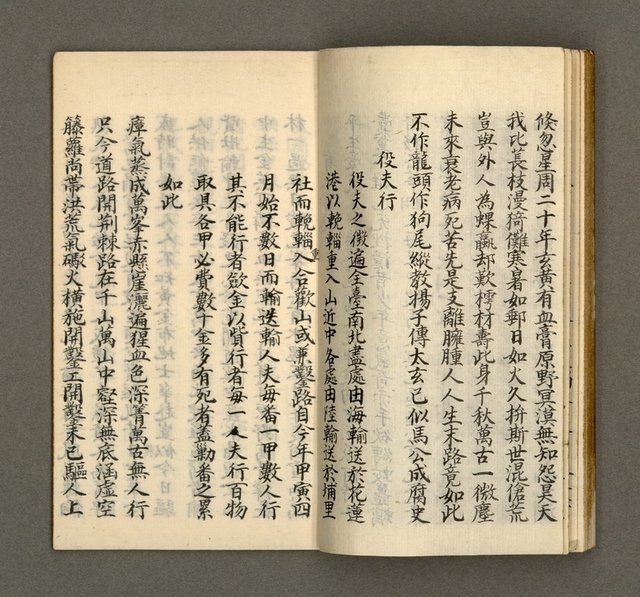 倏忽星周二十年玄黃有血膏原野冥漠無知怨昊天
我比萇枝漫猗儺寒暑如郵日如火久拚斯世混傖荒
豈與外人為蜾蠃却歎樗材壽此身千秋萬古一微塵
未來衰老病死苦先是支離臃腫人人生末路竟如此
不作龍頭作狗尾縱教揚子傳太玄已似馬公成腐史
役夫行
役夫之徵遍全臺南北盡處由海輸送於花蓮
港以輓輜重入山近中各處由陸輸送於埔里
社而輓輜重入合歡山或兼鑿路自今年甲寅四
月始不數日而輸送輸人夫每番一甲數人行
其不能行者歛金以貲行者每一人夫行百物
取具各甲必費數千金多有死者蓋勦番之累
如此
瘴氣蒸成萬峯赤懸崖灑遍猩血色深菁萬古無人行
只今道路開荆棘路在千山萬山中壑深無底涵虛空
籐蘿尚帶洪荒氣礟火橫施開鑿工開鑿未已驅人上